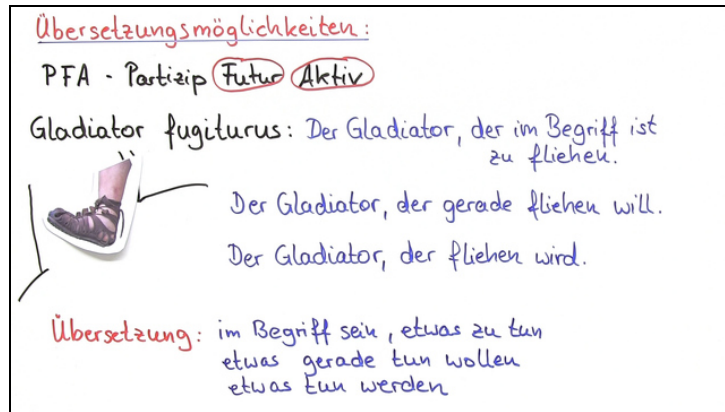 Übersetzungsmöglichkeiten:
PFA - Partizip Futur Aktiv
Gladiator fugiturus: Der Gladiator, der im Begriff ist
zu fliehen.
Der Gladiator, der gerade fliehen will.
Der Gladiator, der fliehen wird.
Übersetzung: im Begriff sein, etwas zu tun
etwas gerade tun wollen
etwas tun werden